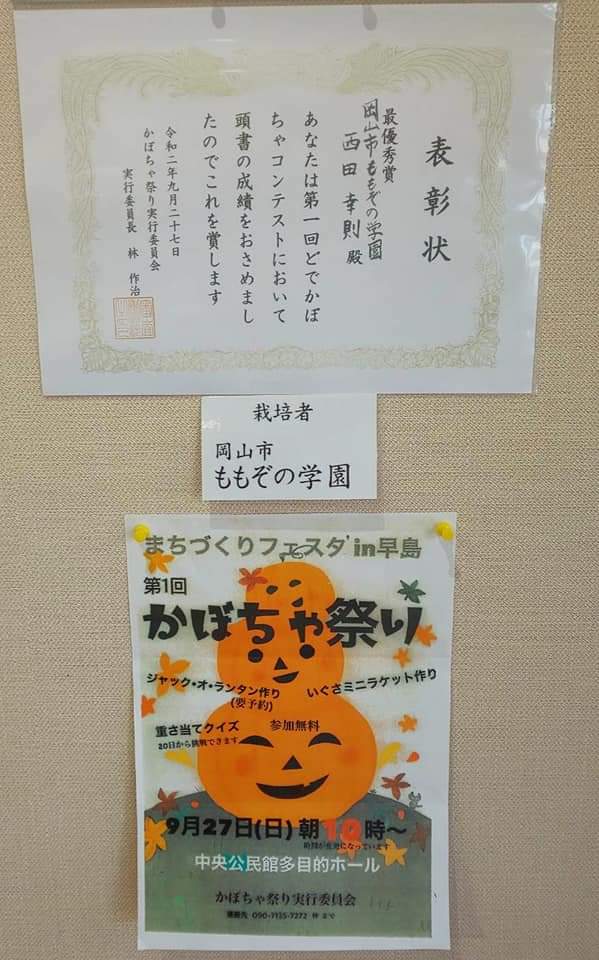 表彰状
最優秀賞
岡山市ももぞの学園
西田幸則 殿
あなたは第一回どでかぼ
ちゃコンテストにおいて
頭書の成績をおさめまし
たのでこれを賞します
令和二年九月二十七日
かぼちゃ祭り実行委員会
実行委員長 林 作治
栽培者
岡山市
ももぞの学園
まちづくりフェスタ in早島
第1回
かぼちゃ祭り
ジャック・オ・ランタン作り
(要予約)
いぐさミニラケット作り
重さ当てクイズ
20日から挑戦できます
参加無料
9月27日(日) 朝10時〜
時間が変更になっています
中央公民館多目的ホール
かぼちゃ祭り実行委員会
連絡先 090-7135-7272 林 まで